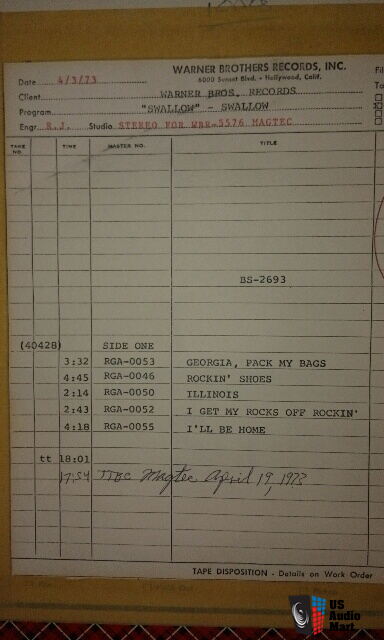 WARNER BROTHERS RECORDS, INC.
6000 Sunset Blvd. • Hollywood, Calif.
Date 4/3/73
Client WARNER BROS. RECORDS
Program "SWALLOW" - SWALLOW
Engr. R.J. Studio STEREO FOR WBR-5576 MAGTEC
TAKE NO. TIME MASTER NO. TITLE
BS-2693
(40428) SIDE ONE
3:32 RGA-0053 GEORGIA, PACK MY BAGS
4:45 RGA-0046 ROCKIN' SHOES
2:14 RGA-0050 ILLINOIS
2:43 RGA-0052 I GET MY ROCKS OFF ROCKIN'
4:18 RGA-0055 I'LL BE HOME
tt 18:01
17:54 Magtec April 19, 1973
TAPE DISPOSITION - Details on Work Order
US
Audio
Mart